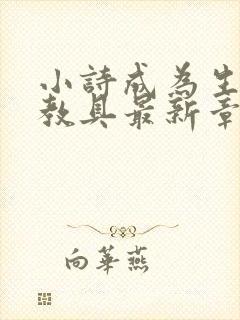 小詩成為生
教具最新章
向華燕